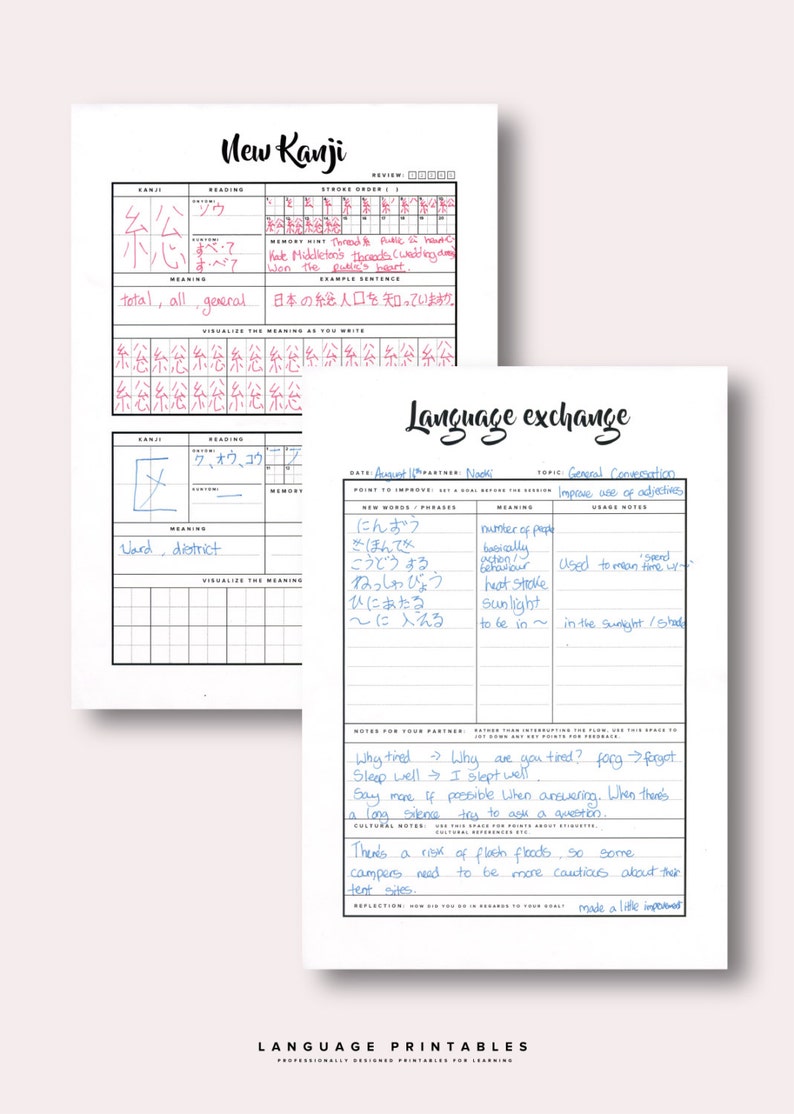 New Kanji
REVIEW: 1 2 3 4 5
KANJI READING STROKE ORDER ( )
総
ONYOMI
ソウ
KUNYOMI
すべ・て
す・べて
1 2 3 4 5 6 7 8 9 10
11 12 13 14 15 16 17 18 19 20
MEMORY HINT Thread 糸 Public 公 heart 心
Kate Middleton's threads (wedding dress)
Won the public's heart.
MEANING EXAMPLE SENTENCE
total, all, general 日本の総人口を知っていますか。
VISUALIZE THE MEANING AS YOU WRITE
総 総 総 総 総 総 総 総 総
総 総 総 総 総
KANJI READING
区
ONYOMI
ク、オウ、コウ
KUNYOMI
1 2
11 12
MEMORY
MEANING
Ward, district
VISUALIZE THE MEANING
Language exchange
DATE: August 16th PARTNER: Naoki TOPIC: General Conversation
POINT TO IMPROVE: SET A GOAL BEFORE THE SESSION Improve use of adjectives
NEW WORDS / PHRASES MEANING USAGE NOTES
にんずう number of people
きほんてき basically
こうどうする action / behaviour Used to mean 'spend time w/~'
ねっしゃびょう heat stroke
ひにあたる sunlight
〜に入える to be in ~ in the sunlight / shade
NOTES FOR YOUR PARTNER: RATHER THAN INTERRUPTING THE FLOW, USE THIS SPACE TO
JOT DOWN ANY KEY POINTS FOR FEEDBACK.
Why tired → Why are you tired? forg → forgot
Sleep well → I slept well.
Say more if possible when answering. When there's
a long silence try to ask a question.
CULTURAL NOTES: USE THIS SPACE FOR POINTS ABOUT ETIQUETTE,
CULTURAL REFERENCES ETC.
There's a risk of flash floods, so some
campers need to be more cautious about their
tent sites.
REFLECTION: HOW DID YOU DO IN REGARDS TO YOUR GOAL? made a little improvement
LANGUAGE PRINTABLES
PROFESSIONALLY DESIGNED PRINTABLES FOR LEARNING